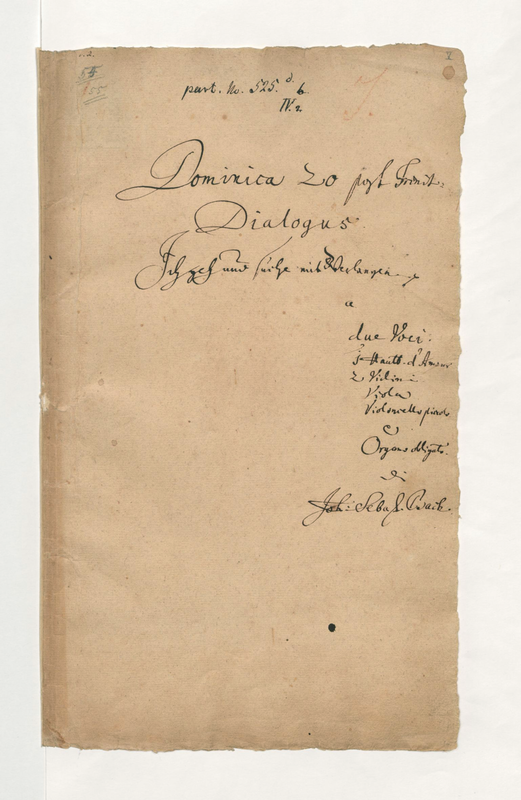 54
55
part. No. 525. d. b
IV. 2.
Dominica 20 post Trinit.
Dialogus
Ich geh und suche mit Verlangen
a
due Voci.
1 Hautb. d'Amour
2 Violini
Viola
Violoncello piccolo
e
Organo obligato.
di
Joh: Sebast. Bach.